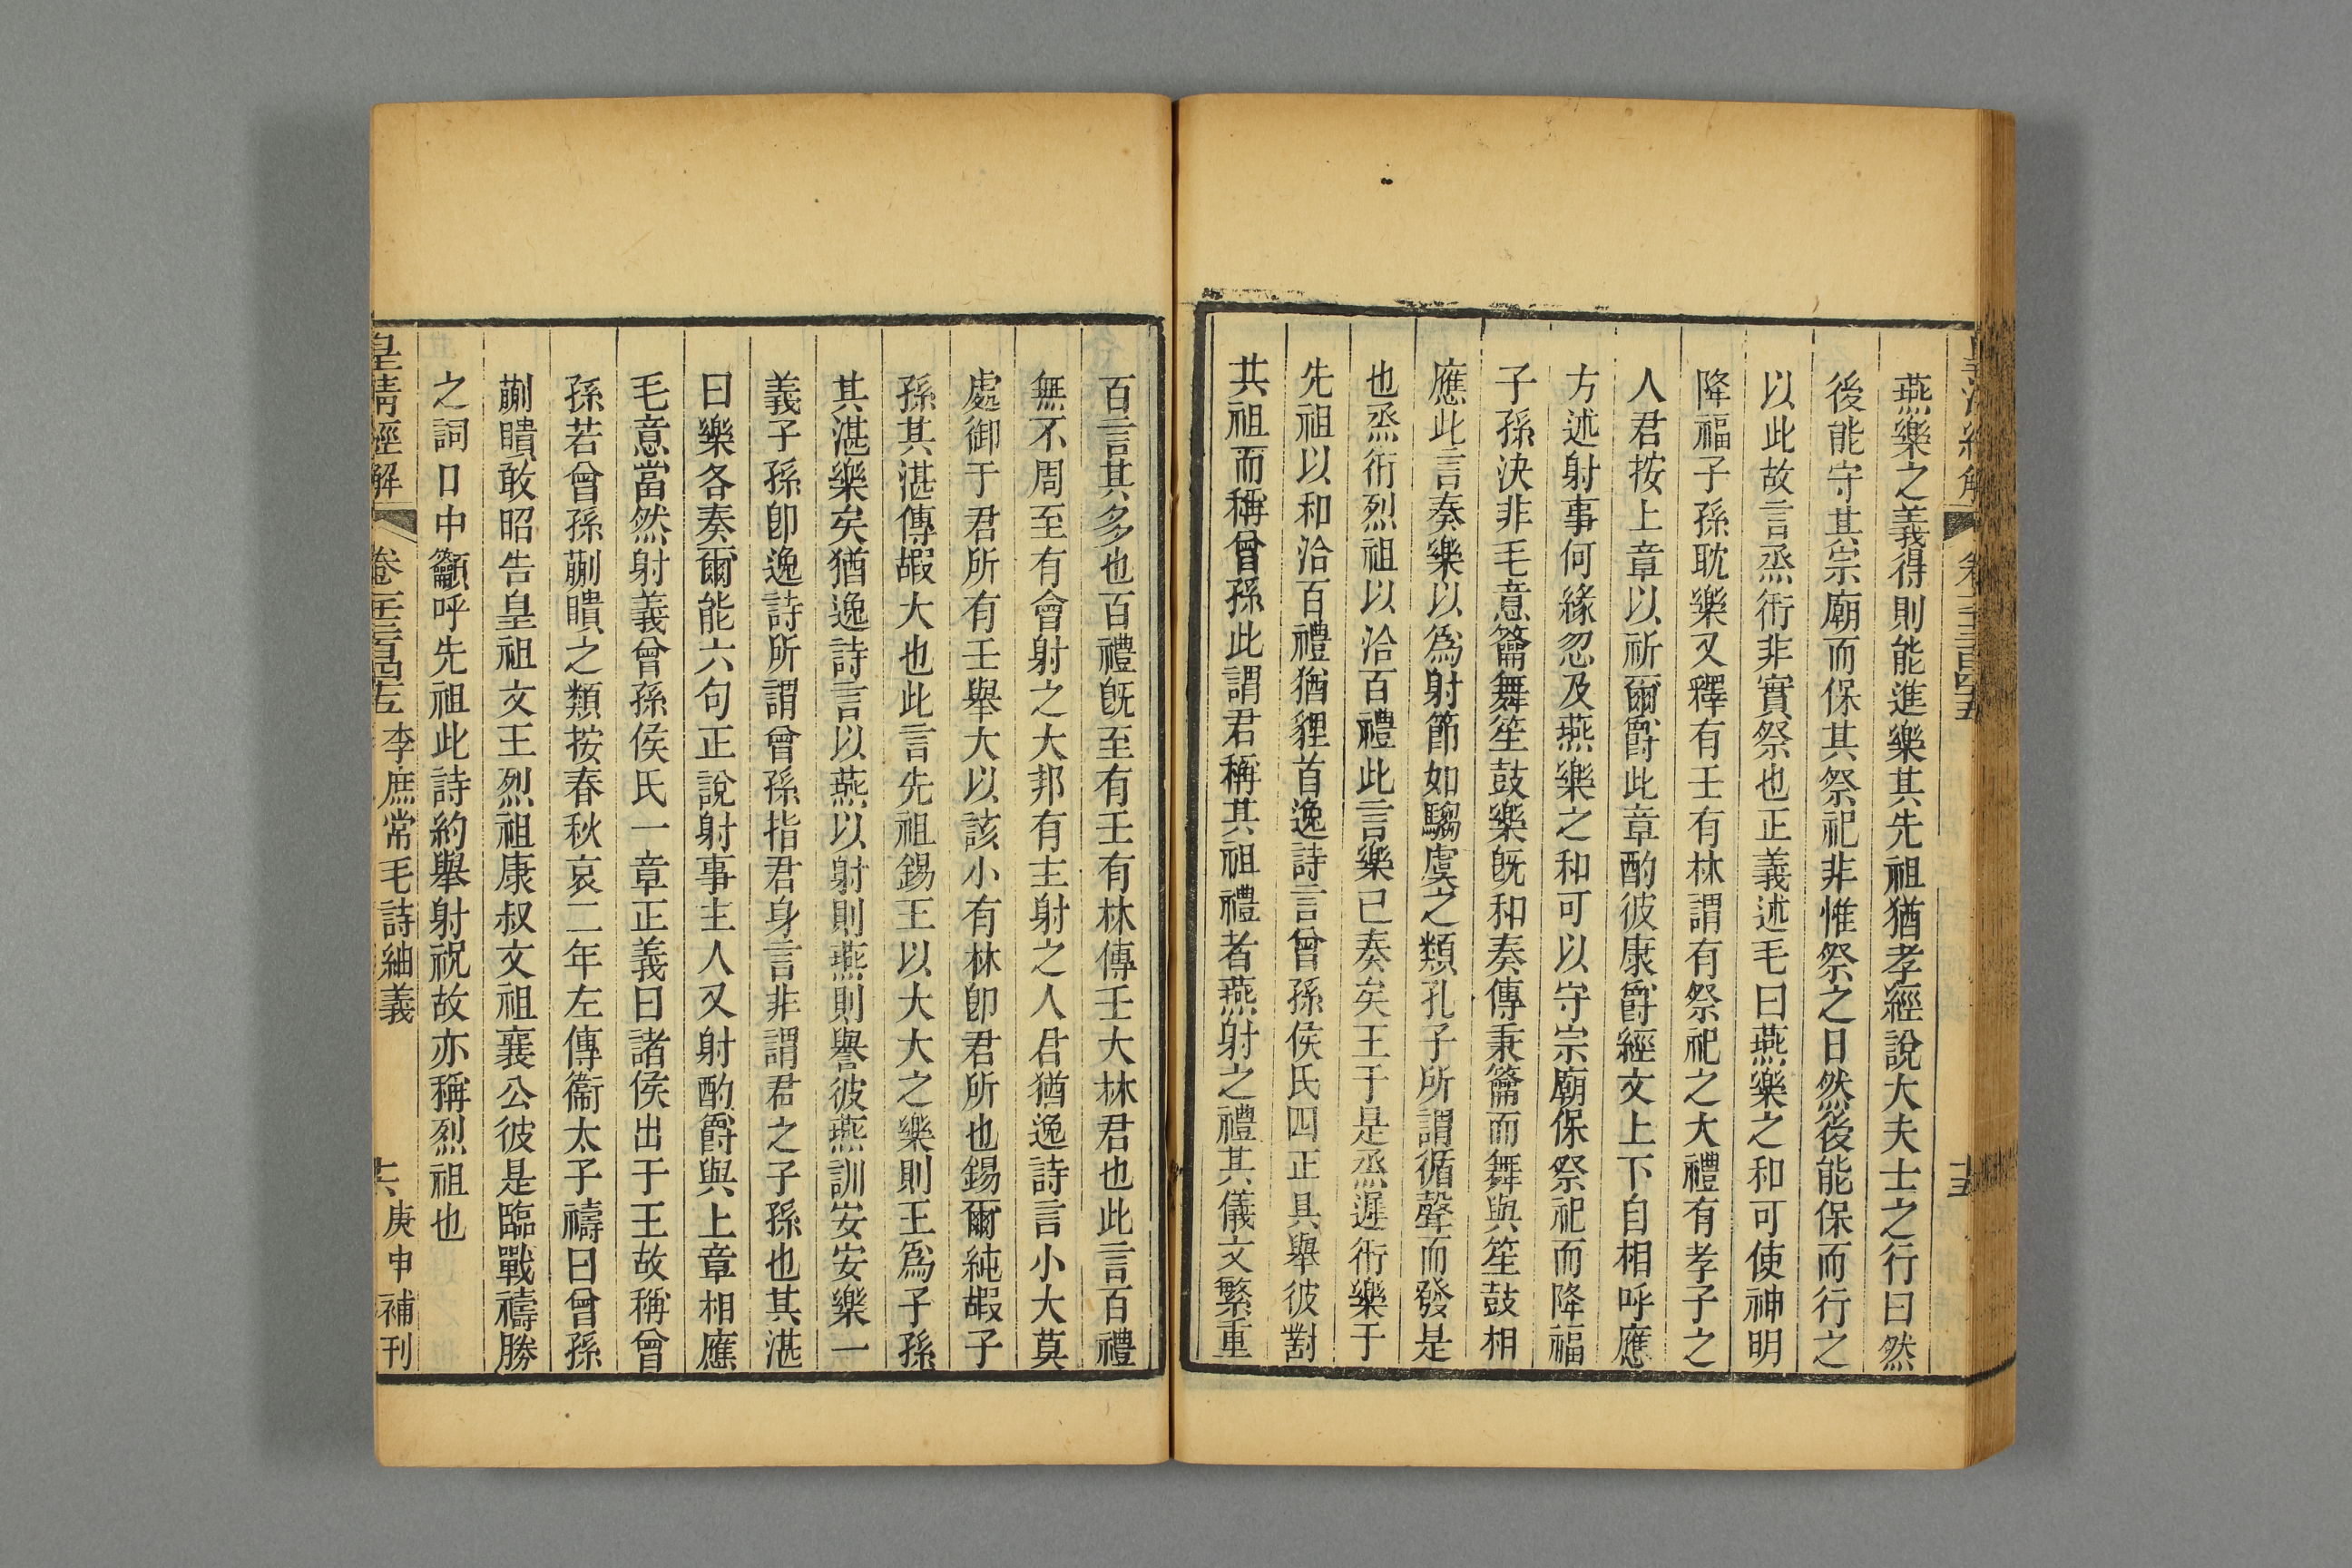 燕樂之義得則能進樂其先祖猶孝經說大夫士之行曰然
後能守其宗廟而保其祭祀非惟祭之日然後能保而行之
以此故言烝衎非實祭也正義述毛曰燕樂之和可使神明
降福子孫耽樂又釋有壬有林謂有祭祀之大禮有孝子之
人君按上章以祈爾爵此章酌彼康爵經文上下自相呼應
方述射事何緣忽及燕樂之和可以守宗廟保祭祀而降福
子孫決非毛意籥舞笙鼓樂旣和奏傳秉籥而舞與笙鼓相
應此言奏樂以爲射節如騶虞之類孔子所謂循聲而發是
也烝衎烈祖以洽百禮此言樂已奏矣王于是烝遲衎樂于
先祖以和洽百禮猶貍首逸詩言曾孫侯氏四正具舉彼對
其祖而稱曾孫此謂君稱其祖禮者燕射之禮其儀文繁重
百言其多也百禮旣至有壬有林傳壬大林君也此言百禮
無不周至有會射之大邦有主射之人君猶逸詩言小大莫
處御于君所有壬舉大以該小有林卽君所也錫爾純嘏子
孫其湛傳嘏大也此言先祖錫王以大大之樂則王爲子孫
其湛樂矣猶逸詩言以燕以射則燕則譽彼燕訓安安樂一
義子孫卽逸詩所謂曾孫指君身言非謂君之子孫也其湛
曰樂各奏爾能六句正說射事主人又射酌爵與上章相應
毛意當然射義曾孫侯氏一章正義曰諸侯出于王故稱曾
孫若曾孫蒯聵之類按春秋哀二年左傳衞太子禱曰曾孫
蒯聵敢昭告皇祖文王烈祖康叔文祖襄公彼是臨戰禱勝
之詞口中籲呼先祖此詩約舉射祝故亦稱烈祖也
皇淸經解 卷一千三百四十五 李庶常毛詩紬義 十六 庚申補刊